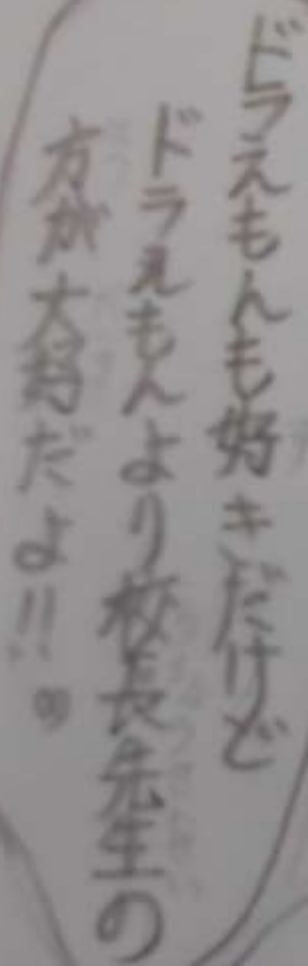 ドラえもんも好きだけど
ドラえもんより校長先生の
方が大好だよ!!